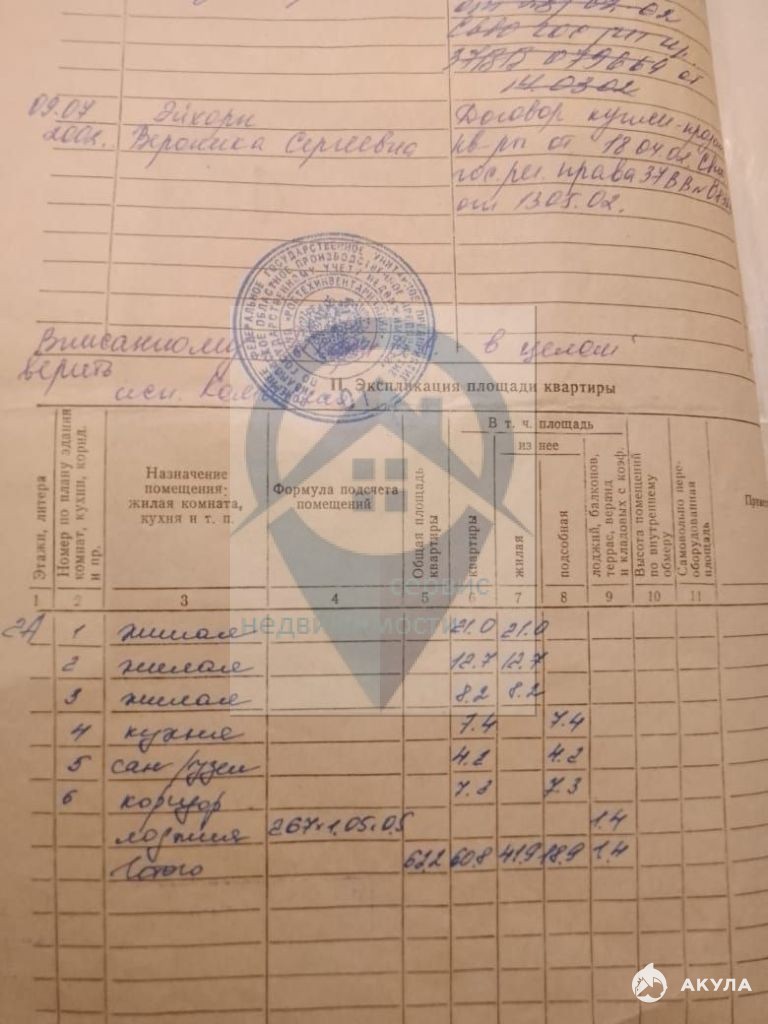 от 02
14.03.02
09.07 Эйхорн Договор купли-продажи
2002г. Вероника Сергеевна кв-ры от 18.04.02. Св-во
гос. рег. права 37 ВВ №
от 13.05.02.
ФЕДЕРАЛЬНОЕ ГОСУДАРСТВЕННОЕ УНИТАРНОЕ ПРЕДПРИЯТИЕ
РОСТЕХИНВЕНТАРИЗАЦИЯ
Вписанному в целом
верить
исп.
II. Экспликация площади квартиры
Этажи, литера
Номер по плану здания комнат, кухни, корид. и пр.
Назначение
помещения:
жилая комната,
кухня и т. п.
Формула подсчета
помещений
Общая площадь квартиры
В т. ч. площадь
из нее
квартиры
жилая
подсобная
лоджий, балконов, террас, веранд и кладовых с коэф.
Высота помещений по внутреннему обмеру
Самовольно пере-оборудованная площадь
1 2 3 4 5 6 7 8 9 10 11
2А 1 жилая 21.0 21.0
2 жилая 12.7 12.7
3 жилая 8.2 8.2
4 кухня 7.4 7.4
5 сан/узел 4.2 4.2
6 коридор 7.3 7.3
лоджия 2.67х1.05х0.5 1.4
Итого 62.2 60.8 41.9 18.9 1.4
сервис
недвижимости
АКУЛА